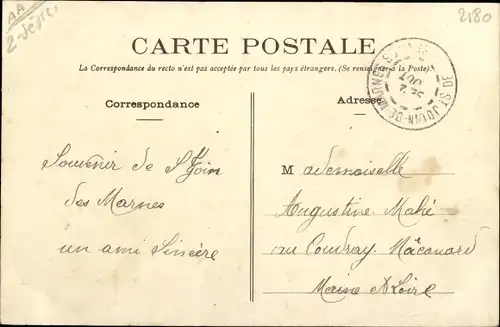 AA
2-Sèvres
2180
CARTE POSTALE
La Correspondance du recto n'est pas acceptée par tous les pays étrangers. (Se renseigner à la Poste).
Correspondance
Adresse
ST-JOUIN-DE-MARNES
Souvenir de St Join
des Marnes
un ami Sincère
Mademoiselle
Augustine Mahé
au Coudray Mâconard
Meine & Loire